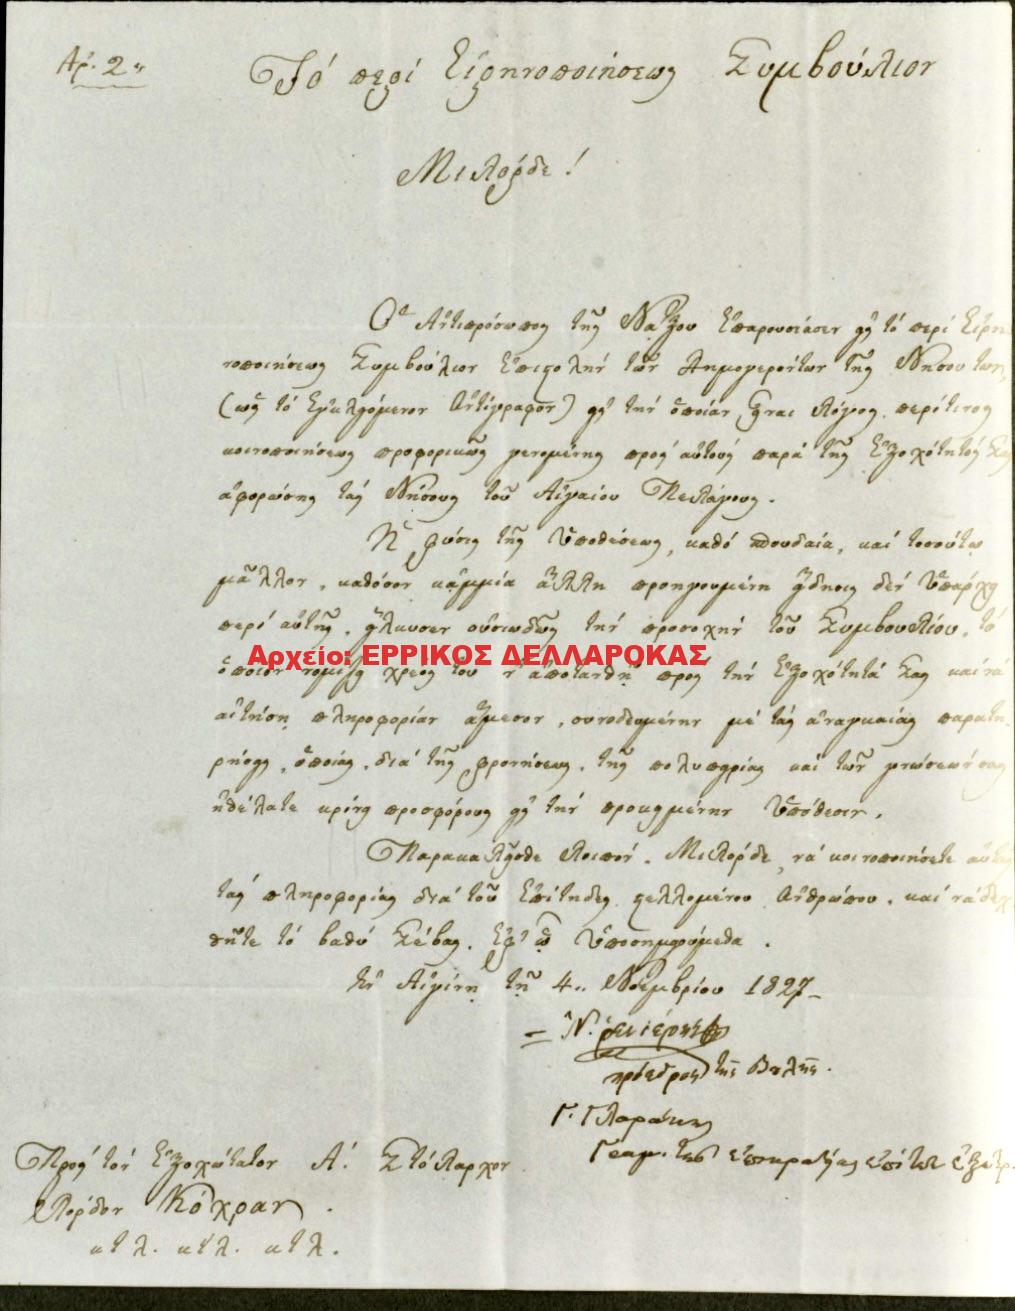 Ἀρ. 2ον
Τό περί Εἰρηνοποιήσεως Συμβούλιον
Μιλόρδε!
Ὁ Ἀντιπρόσωπος τῆς Νάξου ἐπαρουσίασεν εἰς τό περί Εἰρη-
νοποιήσεως Συμβούλιον ἐπιστολήν τῶν Δημογερόντων τῆς Νήσου των,
(ὡς τό ἐγκλειόμενον ἀντίγραφον) εἰς τήν ὁποίαν εἶναι λόγος περί τινος
κοινοποιήσεως προφορικῶς γενομένης πρός αὐτούς παρά τῆς Ἐξοχότητός Σας
ἀφορώσης τάς Νήσους τοῦ Αἰγαίου Πελάγους.
Ἡ φύσις τῆς ὑποθέσεως, καθό σπουδαία, καί τοσούτῳ
μᾶλλον, καθόσον κᾀμμία ἄλλη προηγουμένη εἴδησις δέν ὑπάρχει
περί αὐτῆς, εἵλκυσεν οὐσιωδῶς τήν προσοχήν τοῦ Συμβουλίου, τό
Αρχείο: ΕΡΡΙΚΟΣ ΔΕΛΛΑΡΟΚΑΣ
ὁποῖον νομίζει χρέος του ν' ἀποτανθῇ πρός τήν Ἐξοχότητά Σας καί νά
αἰτήσῃ πληροφορίαν ἄμεσον, συνοδευμένην μέ τάς ἀναγκαίας παρατη-
ρήσεις, ὁποίας, διά τῆς φρονήσεως, τῆς πολυπειρίας καί τῶν γνώσεών σας
ἠθέλατε κρίνει προσφόρους εἰς τήν προκειμένην ὑπόθεσιν.
Παρακαλεῖσθε λοιπόν, Μιλόρδε, νά κοινοποιήσετε αὐτάς
τάς πληροφορίας διά τοῦ ἐπίτηδες στελλομένου ἀνθρώπου, καί νά δεχ-
θῆτε τό βαθύ Σέβας, ἐφ' ᾧ ὑποσημειούμεθα.
Ἐν Αἰγίνῃ τῇ 4 Νοεμβρίου 1827
Ν. ῥενιέρης
πρόεδρος τῆς Βουλῆς.
Γ. Γλαράκης
Γραμ. τῆς ἐπικρατείας ἐπί τῶν ἐξωτερ.
Πρός τόν Ἐξοχώτατον Α. Στόλαρχον
Λόρδον Κόχραν.
κτλ. κτλ. κτλ.